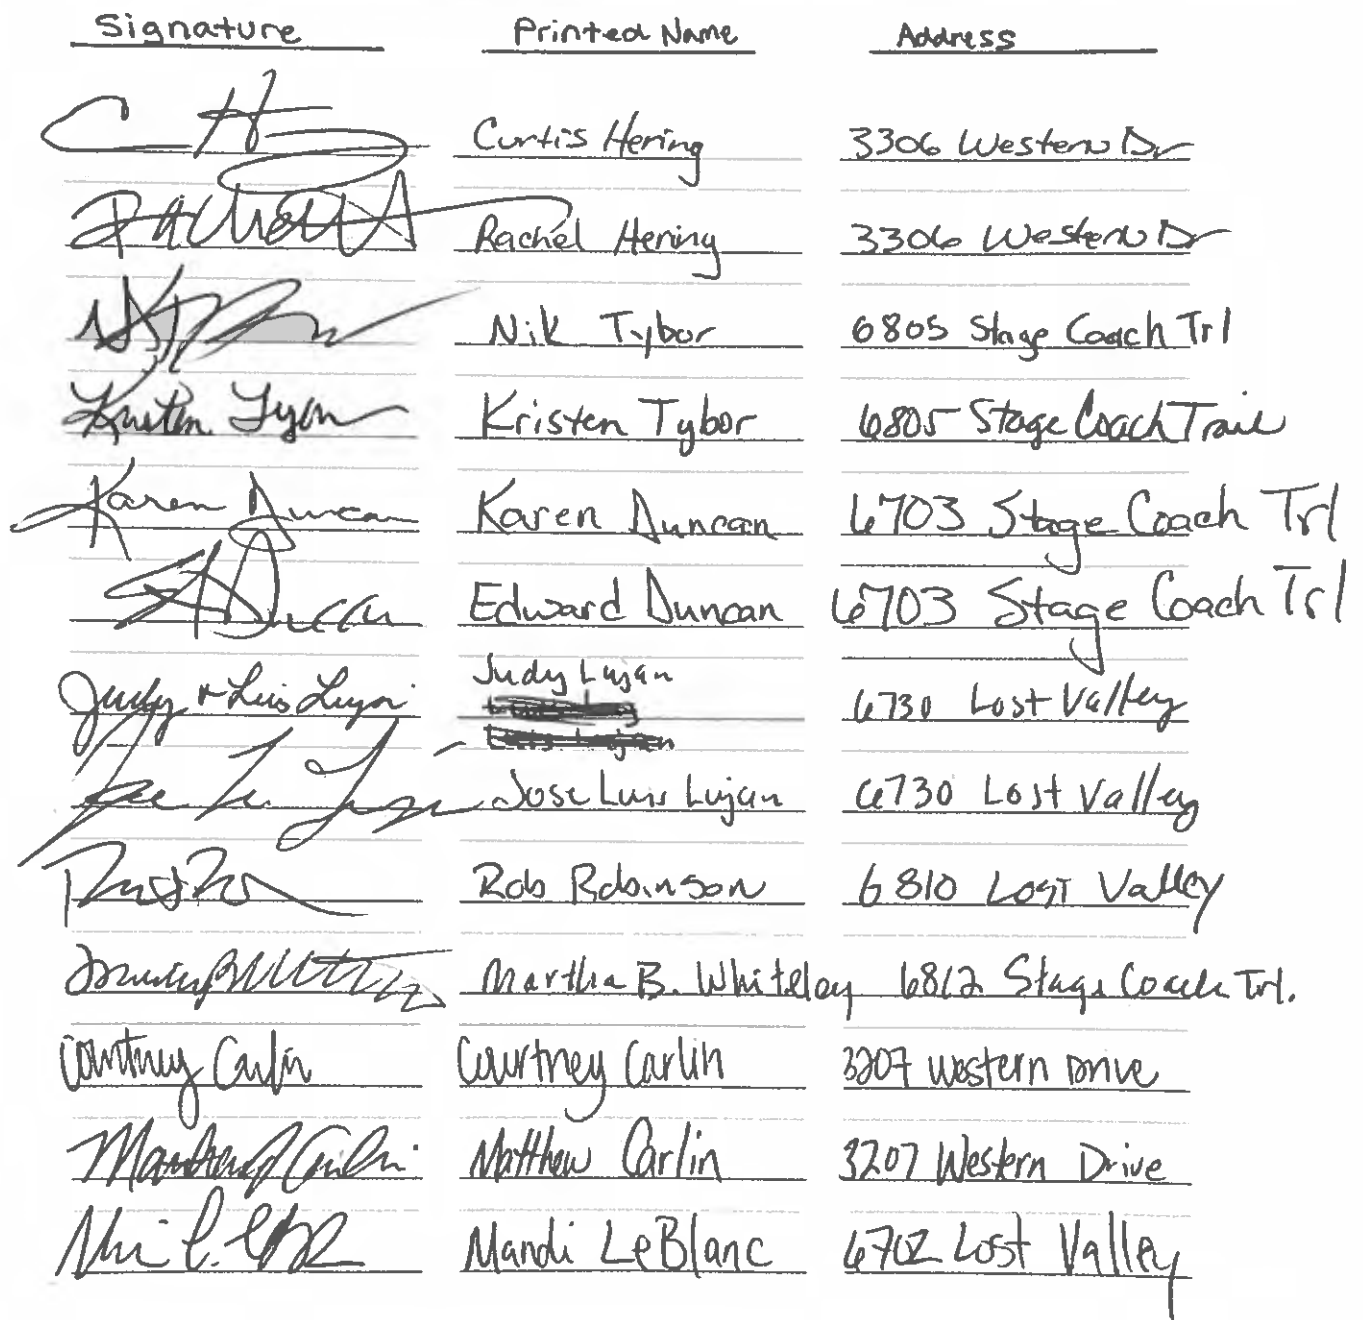 Signature Printed Name Address
Curtis Hering 3306 Western Dr
Rachel Hering 3306 Western Dr
Nik Tybor 6805 Stage Coach Trl
Kristen Tybor 6805 Stage Coach Trail
Karen Duncan Karen Duncan 6703 Stage Coach Trl
Duncan Edward Duncan 6703 Stage Coach Trl
Judy + Luis Lujan Judy Lujan 6730 Lost Valley
Luis Lujan
Jose Luis Lujan 6730 Lost Valley
Rob Robinson 6810 Lost Valley
Martha B. Whiteley 6812 Stage Coach Trl.
Courtney Carlin Courtney Carlin 3207 Western Drive
Matthew Carlin 3207 Western Drive
Mandi LeBlanc 6702 Lost Valley